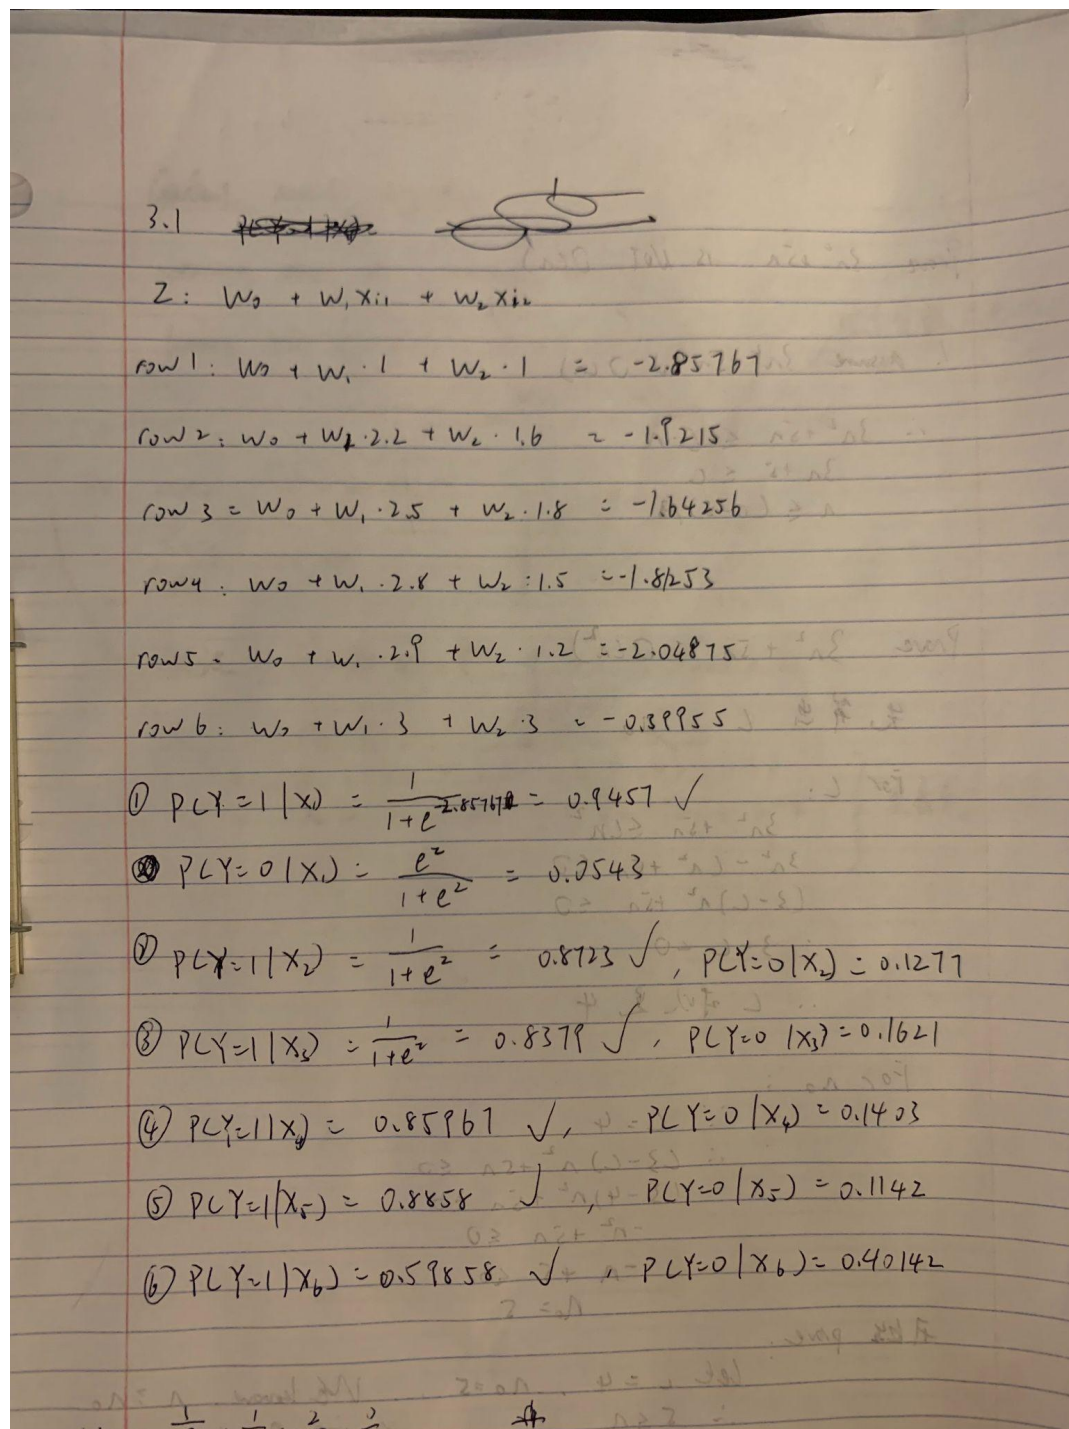 3.1
Z: W₀ + W₁Xi₁ + W₂Xi₂
row 1: W₀ + W₁·1 + W₂·1 = -2.85767
row 2: W₀ + W₁·2.2 + W₂·1.6 = -1.9215
row 3 = W₀ + W₁·2.5 + W₂·1.8 = -1.64256
row 4: W₀ + W₁·2.8 + W₂:1.5 = -1.81253
row 5. W₀ + W₁·2.9 + W₂·1.2 = -2.04875
row 6: W₀ + W₁·3 + W₂·3 = -0.39955
① P(Y=1|X₁) = 1/(1+e^2.85767) = 0.9457 ✓
P(Y=0|X₁) = e^z/(1+e^z) = 0.0543
② P(Y=1|X₂) = 1/(1+e^z) = 0.8723 ✓, P(Y=0|X₂) = 0.1277
③ P(Y=1|X₃) = 1/(1+e^z) = 0.8379 ✓, P(Y=0|X₃) = 0.1621
④ P(Y=1|X₄) = 0.85967 ✓, P(Y=0|X₄) = 0.1403
⑤ P(Y=1|X₅) = 0.8858 ✓, P(Y=0|X₅) = 0.1142
⑥ P(Y=1|X₆) = 0.59858 ✓, P(Y=0|X₆) = 0.40142